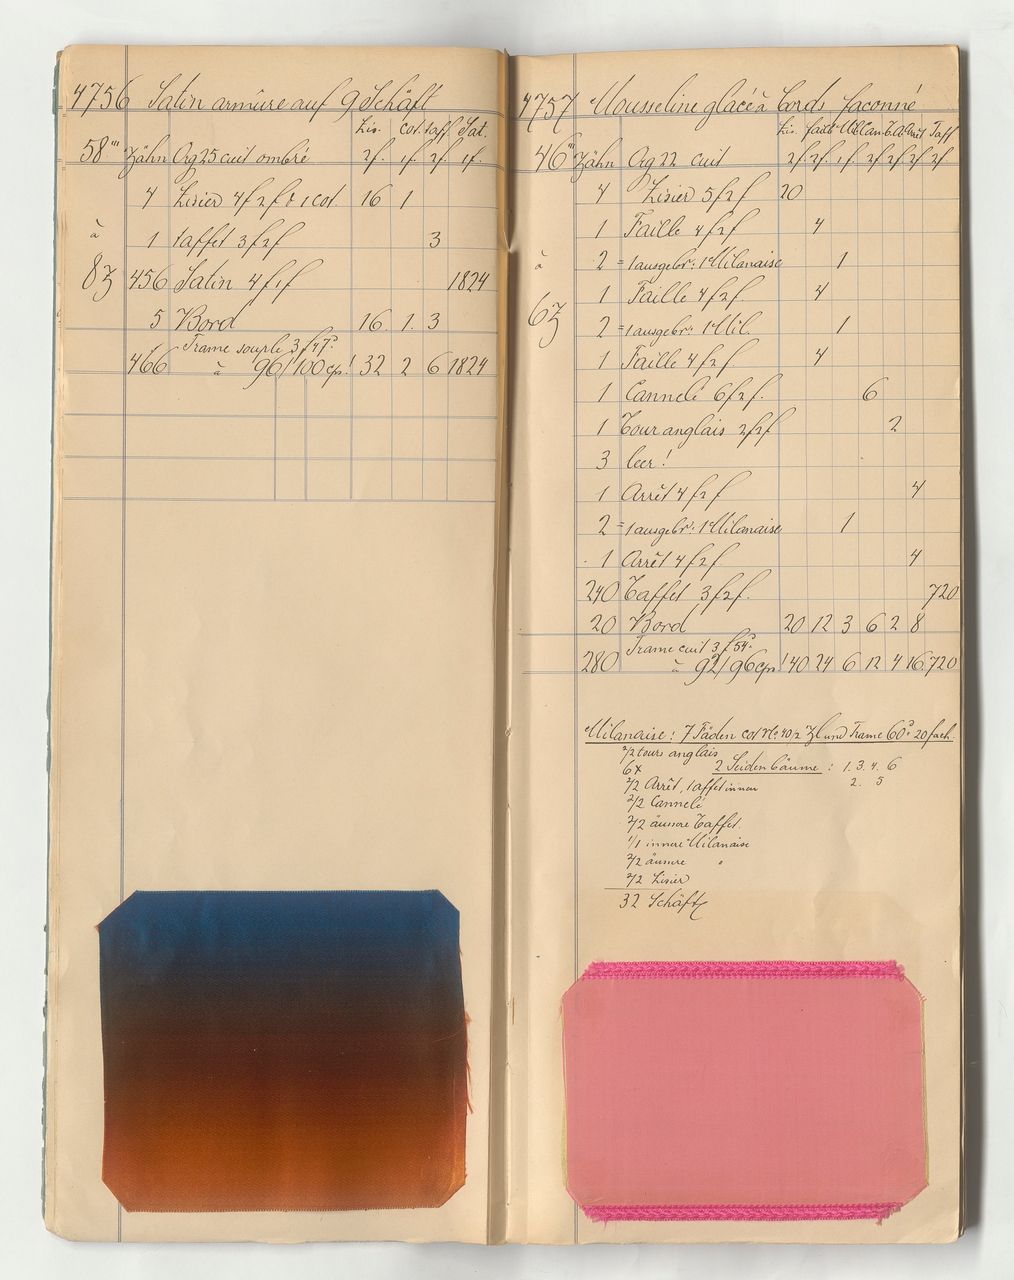 4756 Satin armûre auf 9 Schäft
Lis. cot. taff. Sat.
58''' Zähn Org 25 cuit ombré 2f. 1f. 2f. 1f.
4 Lisier 4f2f & 1 cot. 16 1
à 1 taffet 3f2f 3
8z 456 Satin 4f1f 1824
5 Bord 16. 1. 3
Trame souple 3f
466 à 96/100 cp! 32 2 6 1824
4757 Mousseline glacé à Bords façonné
Lis. faille Mil. Can. T.A. Arrêt Taff
46''' Zähn Org 22 cuit 2f 2f. 1f 2f 2f 2f 2f
4 Lisier 5f2f 20
1 Faille 4f2f 4
à 2 = 1 ausgebr: 1 Milanaise 1
6z 1 Faille 4f2f. 4
2 = 1 ausgebr: 1 Mil. 1
1 Faille 4f2f. 4
1 Cannelé 6f2f. 6
1 Tour anglais 2f2f 2
3 leer!
1 Arrêt 4f2f 4
2 = 1 ausgebr: 1 Milanaise 1
1 Arrêt 4f2f. 4
240 Taffet 3f2f. 720
20 Bord 20 12 3 6 2 8
Trame cuit 3f 54º
280 à 92/96 cp! 40 24 6 12 4 16 720
Milanaise: 7 Fäden cot Nº 40/2 Zl und Trame 60º 20 fach.
2/2 tours anglais
6x 2 Seidenbäume: 1. 3. 4. 6
2/2 Arrêt, taffet innen 2. 5
2/2 Cannelé
2/2 äussre Taffet.
1/1 innere Milanaise
2/2 äussre "
2/2 Lisier
32 Schäfte